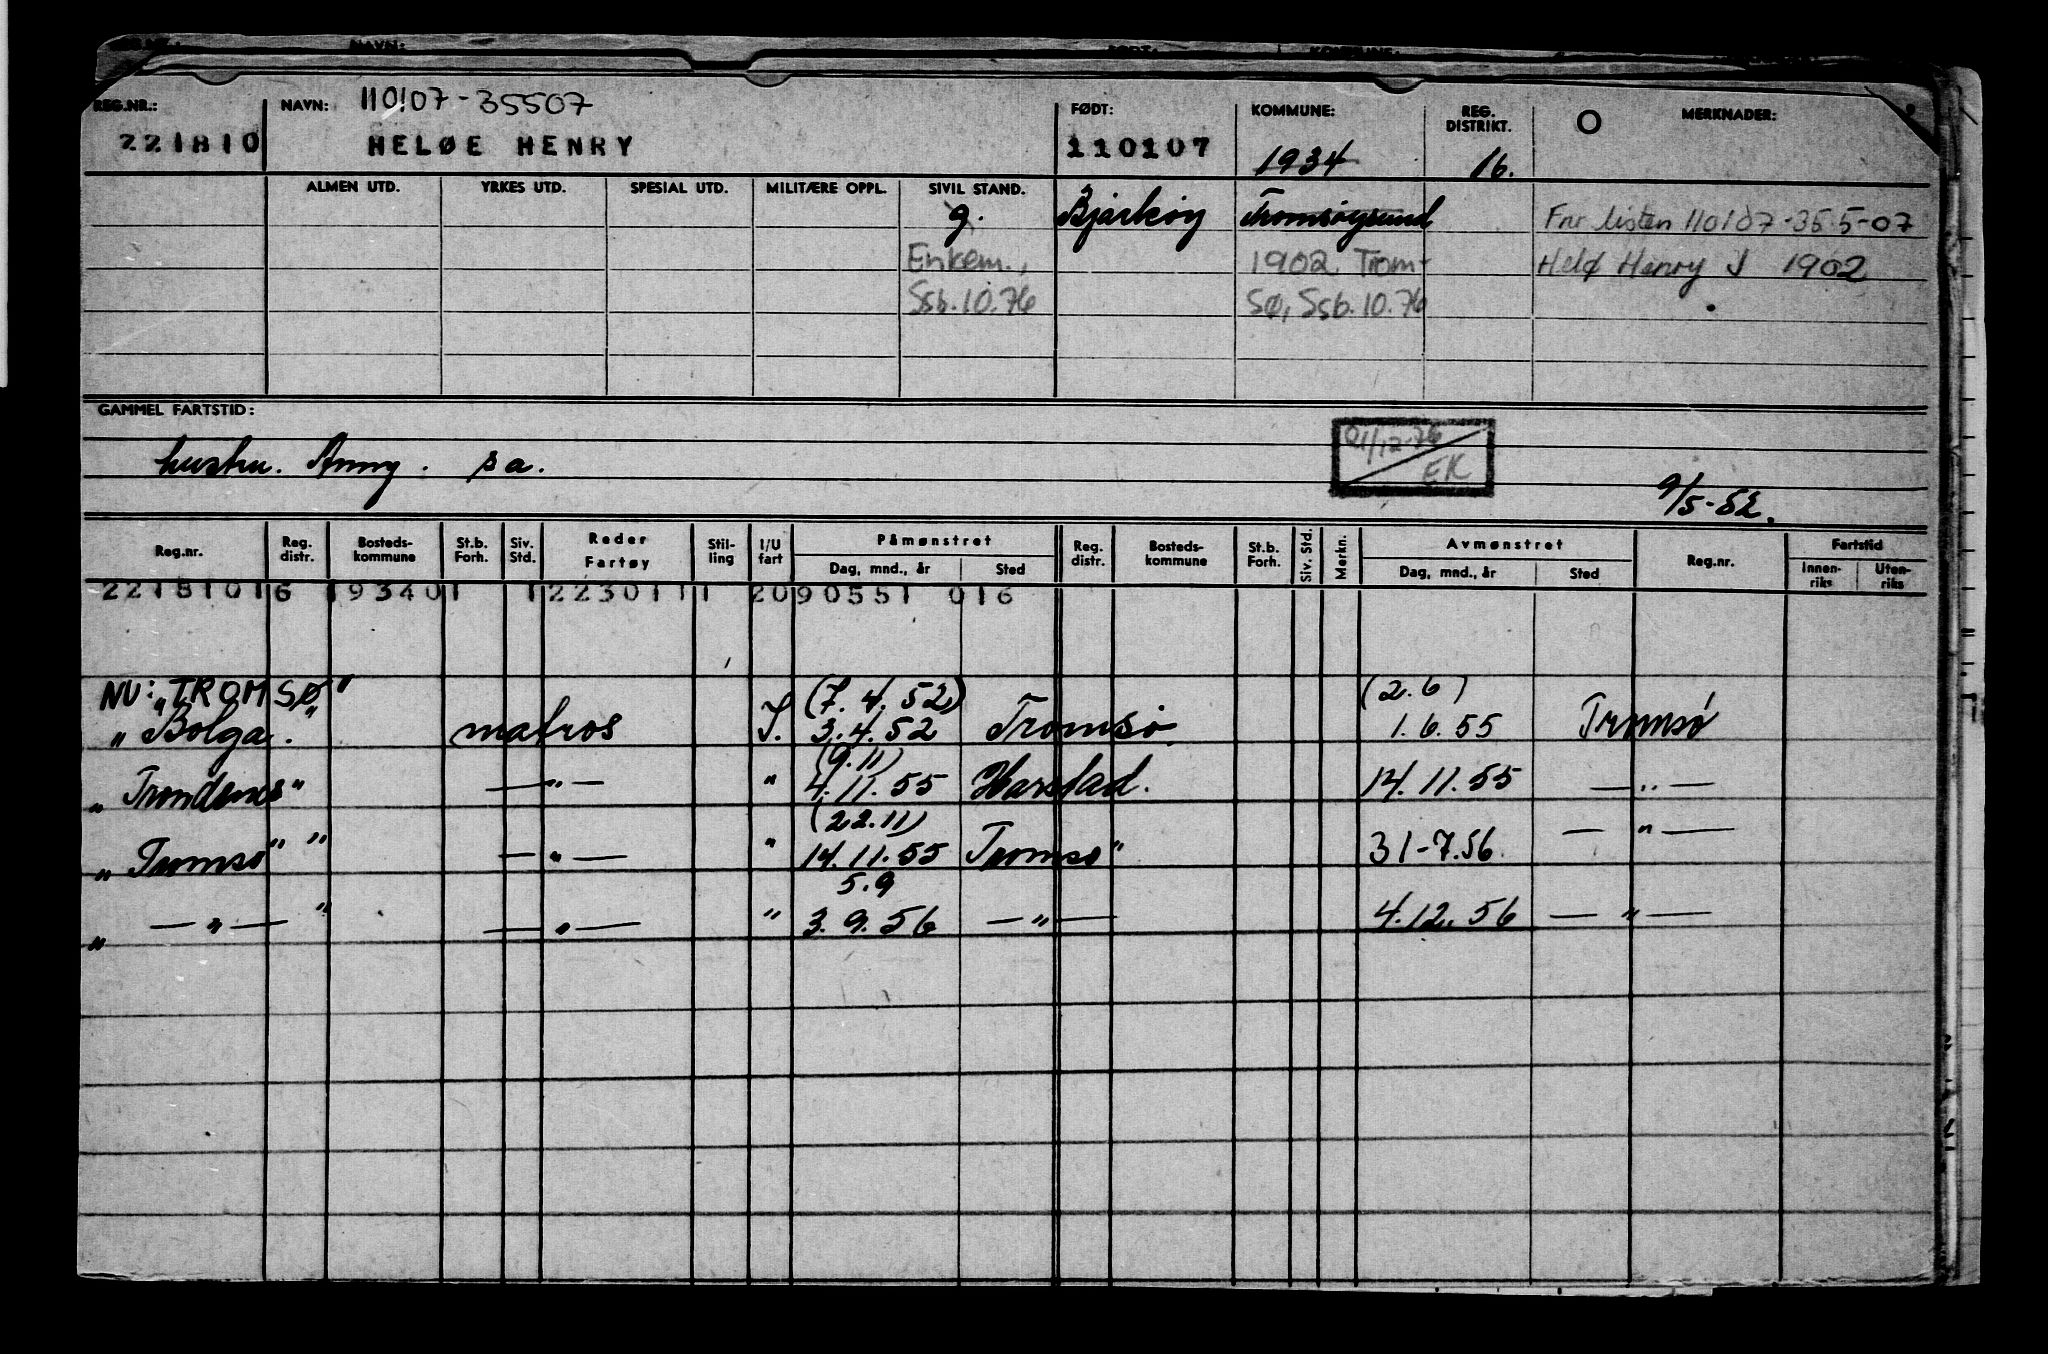 NAVN:
FØDT:
KOMMUNE:
REG.NR.: NAVN: 110107-35507 FØDT: KOMMUNE: REG. DISTRIKT. O MERKNADER:
221810 HELØE HENRY 110107 1934 16.
ALMEN UTD. YRKES UTD. SPESIAL UTD. MILITÆRE OPPL. SIVIL STAND.
g. Bjarkøy Tromsøysund Fnr listen 110107-355-07
Enkem., 1902 Trom- Helø Henry J 1902
Ssb.10.76 sø, Ssb.10.76
GAMMEL FARTSTID:
01/12-76
hustru. Anny. s a. EK
9/5-52.
Reg.nr. Reg. distr. Bosteds- kommune St.b. Forh. Siv. Std. Reder Fartøy Stil- ling I/U fart Påmønstret Reg. distr. Bosteds- kommune St.b. Forh. Siv. Std. Merkn. Avmønstret Reg.nr. Fartstid
Dag, mnd., år Sted Dag, mnd., år Sted Innen- riks Uten- riks
22181016 193401 1223011 1 2090551 016
NU: "TROMSØ" (7.4.52) (2.6)
„ Bolga." matros I. 3.4.52 Tromsø 1.6.55 Tromsø
(9.11)
„ Trondenes" — " — " 4.11.55 Harstad. 14.11.55 — " —
(22.11)
„ Tromsø" " — " — " 14.11.55 Tromsø" 31-7.56 — " —
5.9
„ — " — " — " — " 3.9.56 — " — 4.12.56 — " —